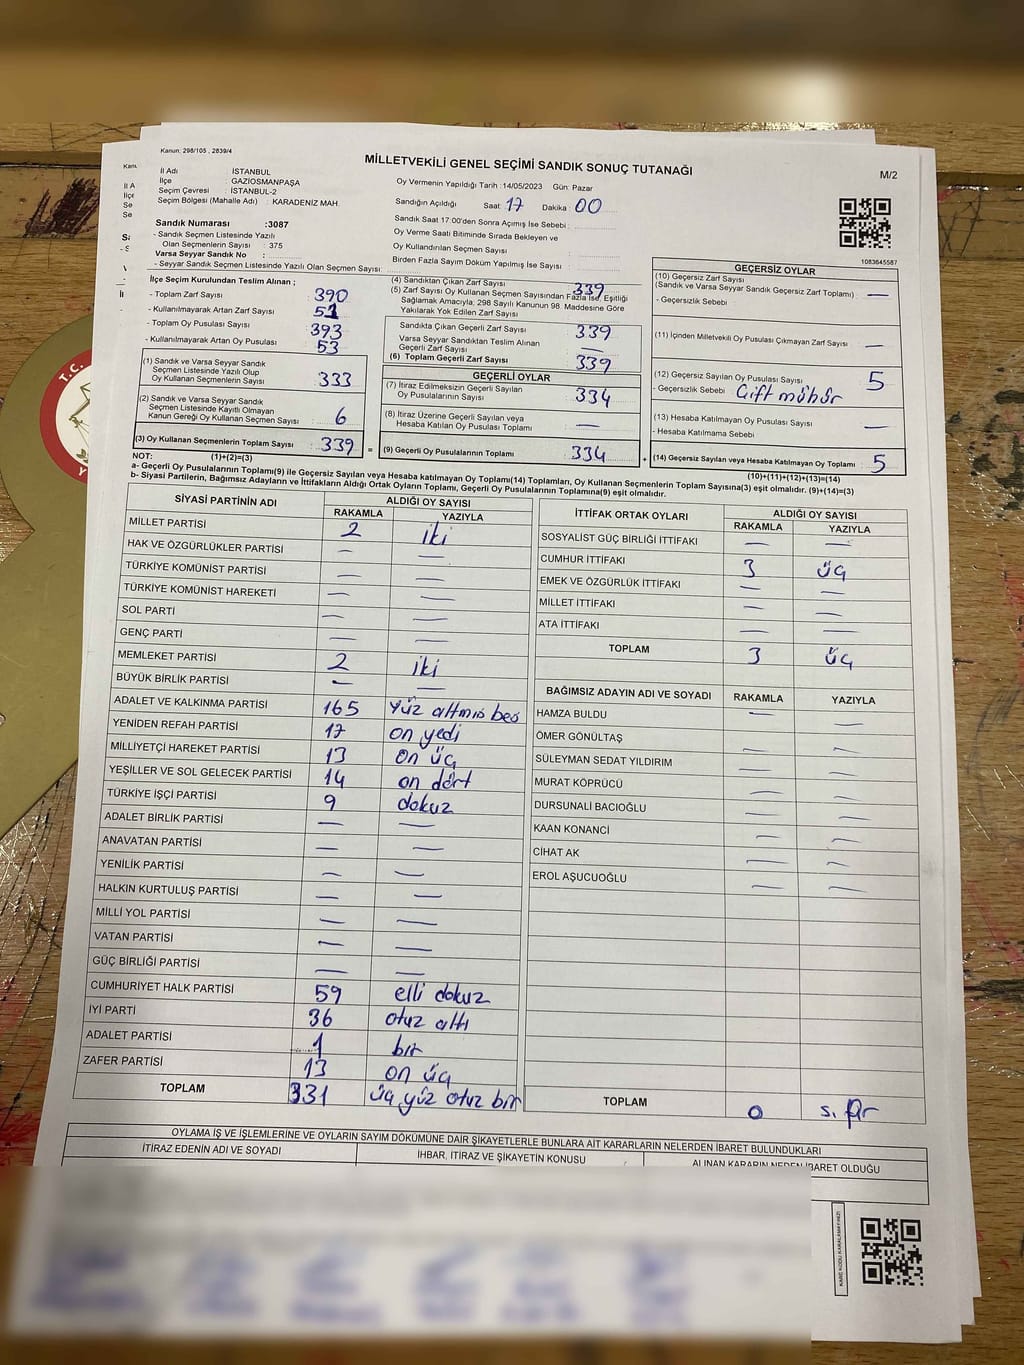 Kanun: 298/105 , 2839/4
MİLLETVEKİLİ GENEL SEÇİMİ SANDIK SONUÇ TUTANAĞI
M/2
İl Adı : İSTANBUL
İlçe : GAZİOSMANPAŞA
Seçim Çevresi : İSTANBUL-2
Seçim Bölgesi (Mahalle Adı) : KARADENİZ MAH.
Sandık Numarası :3087
- Sandık Seçmen Listesinde Yazılı
Olan Seçmenlerin Sayısı : 375
Varsa Seyyar Sandık No :
- Seyyar Sandık Seçmen Listesinde Yazılı Olan Seçmen Sayısı
Oy Vermenin Yapıldığı Tarih :14/05/2023 Gün: Pazar
Sandığın Açıldığı Saat: 17 Dakika : 00
Sandık Saat 17:00'den Sonra Açımış İse Sebebi :
Oy Verme Saati Bitiminde Sırada Bekleyen ve
Oy Kullandırılan Seçmen Sayısı :
Birden Fazla Sayım Döküm Yapılmış İse Sayısı :
1083645587
İlçe Seçim Kurulundan Teslim Alınan ;
- Toplam Zarf Sayısı 390
- Kullanılmayarak Artan Zarf Sayısı 51
- Toplam Oy Pusulası Sayısı 393
- Kullanılmayarak Artan Oy Pusulası 53
(1) Sandık ve Varsa Seyyar Sandık
Seçmen Listesinde Yazılı Olup
Oy Kullanan Seçmenlerin Sayısı 333
(2) Sandık ve Varsa Seyyar Sandık
Seçmen Listesinde Kayıtlı Olmayan
Kanun Gereği Oy Kullanan Seçmen Sayısı 6
(3) Oy Kullanan Seçmenlerin Toplam Sayısı 339 =
(4) Sandıktan Çıkan Zarf Sayısı 339
(5) Zarf Sayısı Oy Kullanan Seçmen Sayısından Fazla İse, Eşitliği
Sağlamak Amacıyla; 298 Sayılı Kanunun 98. Maddesine Göre
Yakılarak Yok Edilen Zarf Sayısı
Sandıkta Çıkan Geçerli Zarf Sayısı 339
Varsa Seyyar Sandıktan Teslim Alınan
Geçerli Zarf Sayısı —
(6) Toplam Geçerli Zarf Sayısı 339
GEÇERLİ OYLAR
(7) İtiraz Edilmeksizin Geçerli Sayılan
Oy Pusulalarının Sayısı 334
(8) İtiraz Üzerine Geçerli Sayılan veya
Hesaba Katılan Oy Pusulası Toplamı —
(9) Geçerli Oy Pusulalarının Toplamı 334 +
GEÇERSİZ OYLAR
(10) Geçersiz Zarf Sayısı
(Sandık ve Varsa Seyyar Sandık Geçersiz Zarf Toplamı) —
- Geçersizlik Sebebi
(11) İçinden Milletvekili Oy Pusulası Çıkmayan Zarf Sayısı —
(12) Geçersiz Sayılan Oy Pusulası Sayısı 5
- Geçersizlik Sebebi Çift mühür
(13) Hesaba Katılmayan Oy Pusulası Sayısı —
- Hesaba Katılmama Sebebi
(14) Geçersiz Sayılan veya Hesaba Katılmayan Oy Toplamı 5
NOT: (1)+(2)=(3) (10)+(11)+(12)+(13)=(14)
a- Geçerli Oy Pusulalarının Toplamı(9) ile Geçersiz Sayılan veya Hesaba katılmayan Oy Toplamı(14) Toplamları, Oy Kullanan Seçmenlerin Toplam Sayısına(3) eşit olmalıdır. (9)+(14)=(3)
b- Siyasi Partilerin, Bağımsız Adayların ve İttifakların Aldığı Ortak Oyların Toplamı, Geçerli Oy Pusulalarının Toplamına(9) eşit olmalıdır.
SİYASİ PARTİNİN ADI ALDIĞI OY SAYISI
RAKAMLA YAZIYLA
MİLLET PARTİSİ 2 iki
HAK VE ÖZGÜRLÜKLER PARTİSİ — —
TÜRKİYE KOMÜNİST PARTİSİ — —
TÜRKİYE KOMÜNİST HAREKETİ — —
SOL PARTİ — —
GENÇ PARTİ — —
MEMLEKET PARTİSİ 2 iki
BÜYÜK BİRLİK PARTİSİ — —
ADALET VE KALKINMA PARTİSİ 165 Yüz altmış beş
YENİDEN REFAH PARTİSİ 17 on yedi
MİLLİYETÇİ HAREKET PARTİSİ 13 on üç
YEŞİLLER VE SOL GELECEK PARTİSİ 14 on dört
TÜRKİYE İŞÇİ PARTİSİ 9 dokuz
ADALET BİRLİK PARTİSİ — —
ANAVATAN PARTİSİ — —
YENİLİK PARTİSİ — —
HALKIN KURTULUŞ PARTİSİ — —
MİLLİ YOL PARTİSİ — —
VATAN PARTİSİ — —
GÜÇ BİRLİĞİ PARTİSİ — —
CUMHURİYET HALK PARTİSİ 59 elli dokuz
İYİ PARTİ 36 otuz altı
ADALET PARTİSİ 1 bir
ZAFER PARTİSİ 13 on üç
TOPLAM 331 üç yüz otuz bir
İTTİFAK ORTAK OYLARI ALDIĞI OY SAYISI
RAKAMLA YAZIYLA
SOSYALİST GÜÇ BİRLİĞİ İTTİFAKI — —
CUMHUR İTTİFAKI 3 üç
EMEK VE ÖZGÜRLÜK İTTİFAKI — —
MİLLET İTTİFAKI — —
ATA İTTİFAKI — —
TOPLAM 3 üç
BAĞIMSIZ ADAYIN ADI VE SOYADI RAKAMLA YAZIYLA
HAMZA BULDU — —
ÖMER GÖNÜLTAŞ — —
SÜLEYMAN SEDAT YILDIRIM — —
MURAT KÖPRÜCÜ — —
DURSUNALİ BACIOĞLU — —
KAAN KONANCİ — —
CİHAT AK — —
EROL AŞUCUOĞLU — —
TOPLAM 0 sıfır
OYLAMA İŞ VE İŞLEMLERİNE VE OYLARIN SAYIM DÖKÜMÜNE DAİR ŞİKAYETLERLE BUNLARA AİT KARARLARIN NELERDEN İBARET BULUNDUKLARI
İTİRAZ EDENİN ADI VE SOYADI İHBAR, İTİRAZ VE ŞİKAYETİN KONUSU ALINAN KARARIN NEDEN İBARET OLDUĞU
KARE KODU KARALAMAYINIZ!